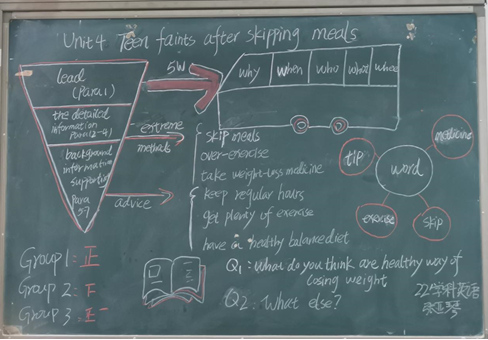 Unit 4 Teen faints after skipping meals
lead
(Para1)
the detailed
information
Para(2-4)
background
information
supporting
Para
5-7
5W
why when who what where
extreme
methods
skip meals
over-exercise
take weight-loss medicine
advice
keep regular hours
get plenty of exercise
have a healthy balanced diet
word
medicine
tip
exercise
skip
Group 1: 正
Group 2: 下
Group 3:
Q1: What do you think are healthy way of
losing weight
Q2: What else?
22学科英语